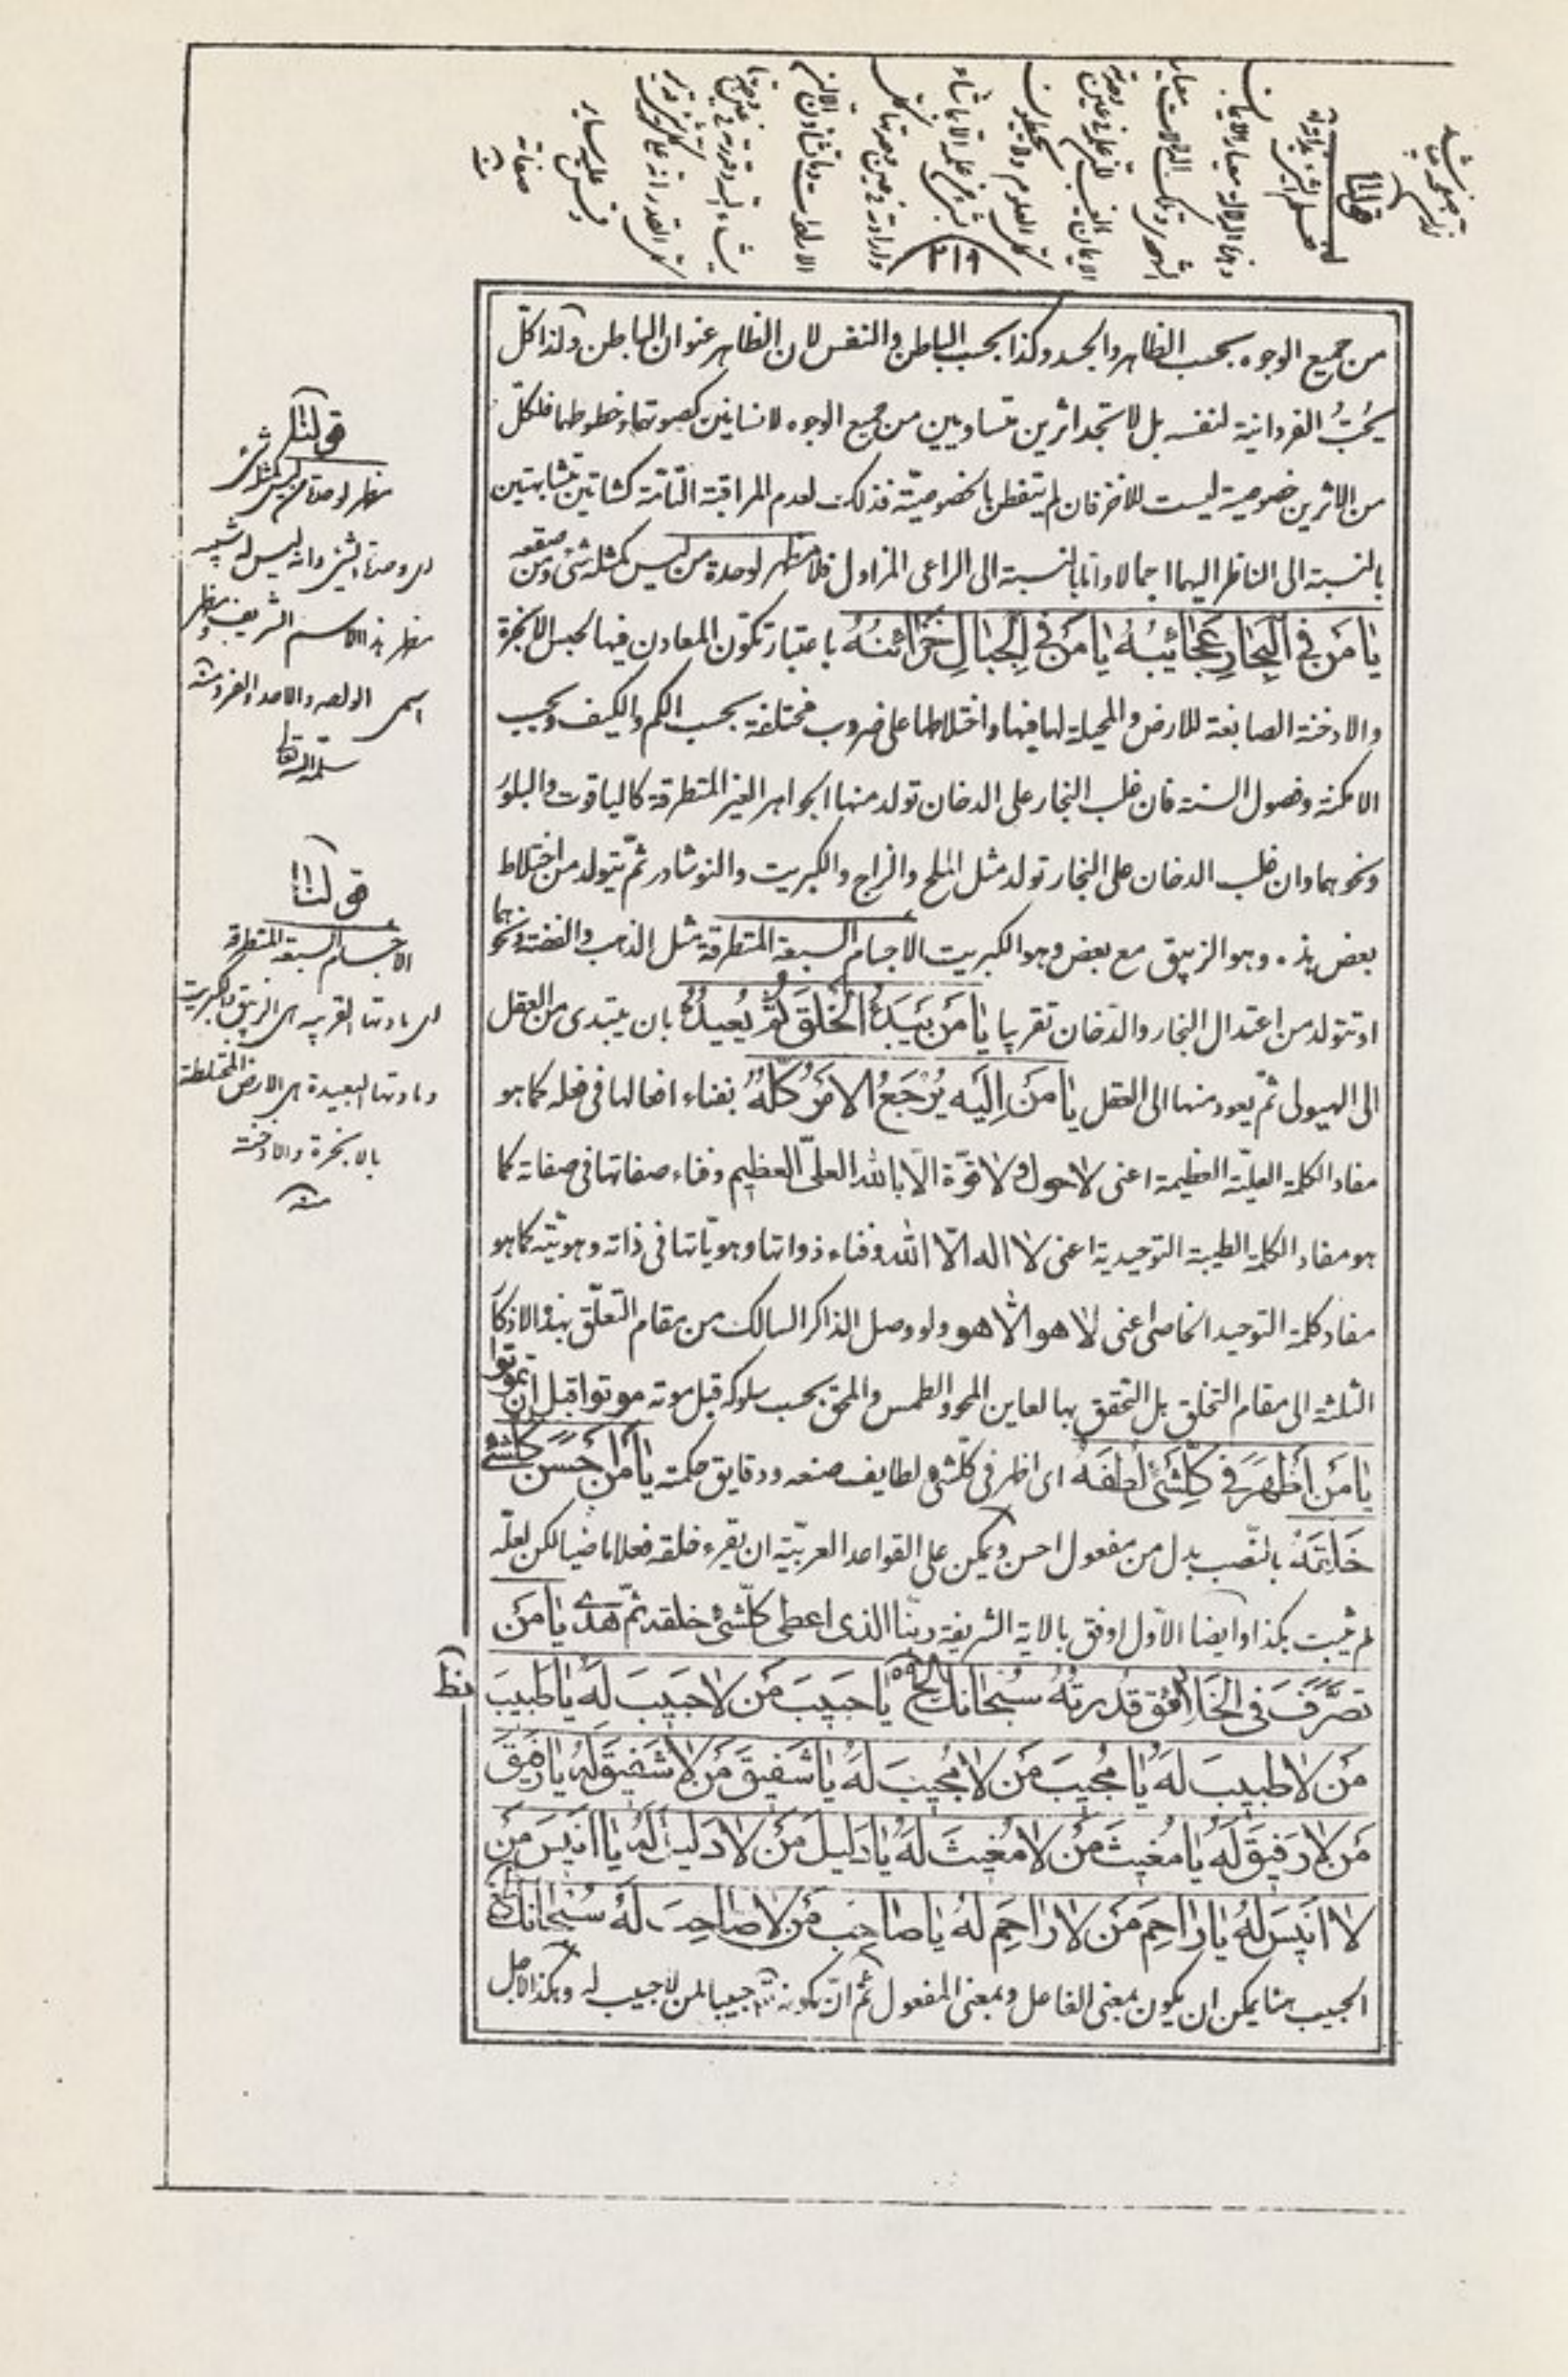 ٢١٩
من جميع الوجوه بحسب الظاهر والجسد وكذا بحسب الباطن والنفس لان الظاهر عنوان الباطن ولذا كلّ
يحبّ الفردانية لنفسه بل لا تجد اثرين متساويين من جميع الوجوه لانسانين كصوتهما وخطوطهما فلكلّ
من الاثرين خصوصية ليست للاخر فان لم يتفطن بالخصوصيّة فذلك لعدم المراقبة التّامّة كشاتين متشابهتين
بالنسبة الى الناظر اليهما اجمالا واما بالنسبة الى الراعى المزاول فلا مظهر لوحدة من ليس كمثله شئ ومن صقعه
يا مَن فِى الْبِحارِ عَجائِبُهُ يا مَن فِى الْجِبالِ خَزائِنُهُ باعتبار تكوّن المعادن فيها لحبس الابخرة
والادخنة الصابغة للارض والمحيلة لها فيها واختلاطها على ضروب مختلفة بحسب الكم والكيف وبحسب
الامكنة وفصول السنة فان غلب البخار على الدخان تولد منها الجواهر الغير المتطرقة كالياقوت والبلور
ونحوهما وان غلب الدخان على البخار تولد مثل الملح والزاج والكبريت والنوشادر ثمّ يتولد من اختلاط
بعض هذه وهو الزيبق مع بعض وهو الكبريت الاجسام السبعة المتطرقة مثل الذهب والفضة ونحوهما
او تتولد من اعتدال البخار والدّخان تقريبا يا مَن يَبْدَءُ الْخَلْقَ ثُمَّ يُعيدُهُ بان يبتدى من العقل
الى الهيولى ثمّ يعود منها الى العقل يا مَن اِلَيْهِ يُرْجَعُ الامْرُ كُلُّهُ بفناء افعالها فى فعله كما هو
مفاد الكلمة العليّة العظيمة اعنى لا حول ولا قوّة الّا بالله العلىّ العظيم وفناء صفاتها فى صفاته كما
هو مفاد الكلمة الطيبة التوحيدية اعنى لا اله الّا الله وفناء ذواتها وهويّاتها فى ذاته وهويّته كما هو
مفاد كلمة التوحيد الخاصى اعنى لا هو الّا هو ولو وصل الذاكر السالك من مقام التعلّق بهذه الاذكار
الثلثة الى مقام التخلق بل التحقق بها لعاين المحو والطمس والمحق بحسب سلوكه قبل موته موتوا قبل ان تموتوا
يا مَن اَظْهَرَ فى كُلِّ شَئٍ لُطْفَهُ اى اظهر فى كلّ شئ لطايف صنعه ودقايق حكمته يا مَن اَحْسَنَ كُلَّ شَئٍ
خَلْقَهُ بالنّصب بدل من مفعول احسن ويمكن على القواعد العربيّة ان يقرء خلقه فعلا ماضيا لكن لعلّه
لم يثبت هكذا وايضا الاوّل اوفق بالاية الشريفة ربّنا الذى اعطى كلّ شئ خلقه ثمّ هدى يا مَن
تَصَرَّفَ فى الْخَلائِقِ قُدْرَتُهُ سُبْحانَكَ الخ يا حَبيبَ مَن لا حَبيبَ لَهُ يا طَبيبَ
مَن لا طَبيبَ لَهُ يا مُجيبَ مَن لا مُجيبَ لَهُ يا شَفيقَ مَن لا شَفيقَ لَهُ يا رَفيقَ
مَن لا رَفيقَ لَهُ يا مُغيثَ مَن لا مُغيثَ لَهُ يا دَليلَ مَن لا دَليلَ لَهُ يا اَنيسَ مَن
لا اَنيسَ لَهُ يا راحِمَ مَن لا راحِمَ لَهُ يا صاحِبَ مَن لا صاحِبَ لَهُ سُبْحانَكَ الخ
الحبيب هنا يمكن ان يكون بمعنى الفاعل وبمعنى المفعول ثم انّ كونه تعالى حبيبا لمن لا حبيب له وهكذا لاجل
نط
قولنا
مظهر لوحدة من ليس كمثله شئ
اى وحدة الشئ وانه ليس له شبيه
مظهر هذا الاسم الشريف ومظهر
اسمى الواحد والاحد والفرد منه
سلمه الله تعالى
قولنا
الاجسام السبعة المتطرقة
اى مادتها القريبة هى الزيبق والكبريت
ومادتها البعيدة هى الارض المختلطة
بالابخرة والادخنة
منه